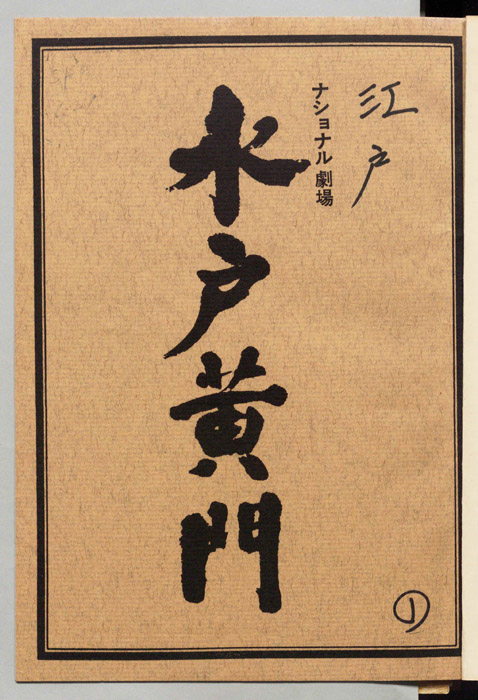 江戸
ナショナル劇場
水戸黄門
①